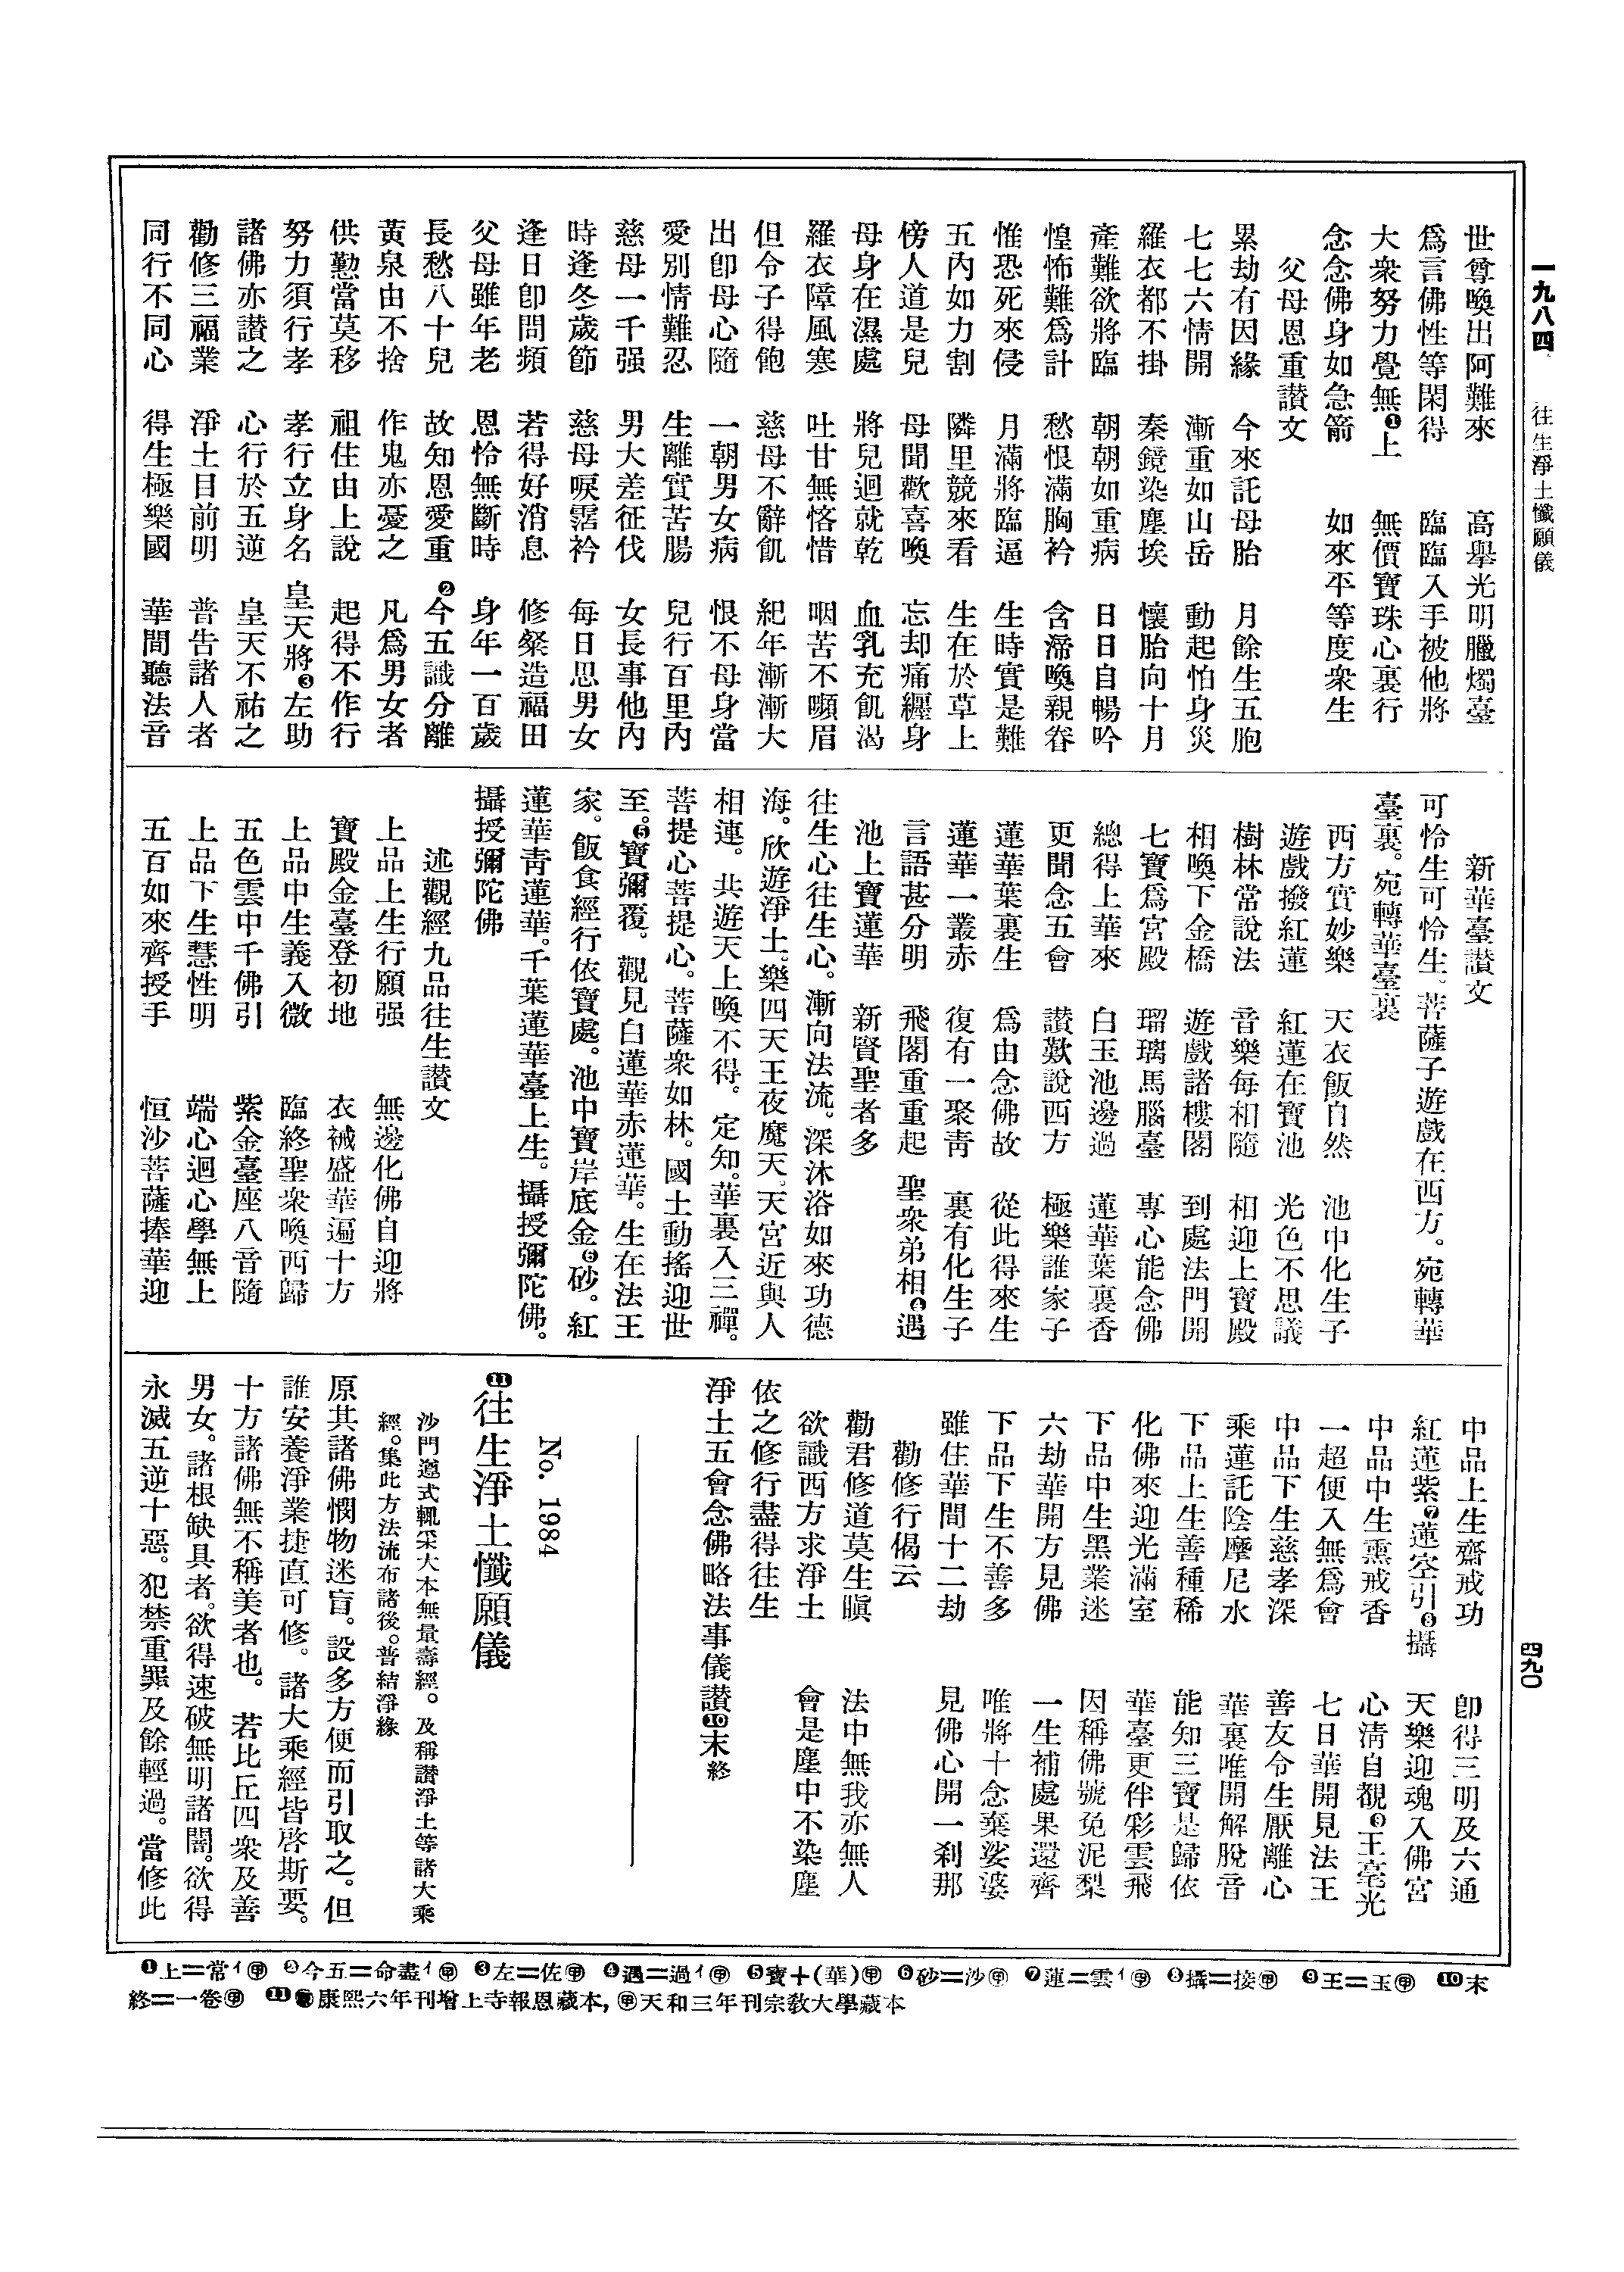 一九八四　往生淨土懺願儀
四九〇
世尊喚出阿難來　高擧光明臘燭臺
爲言佛性等閑得　臨臨入手被他將
大衆努力覺無❶上　無價寶珠心裏行
念念佛身如急箭　如來平等度衆生
父母恩重讃文
累劫有因緣　今來託母胎　月餘生五胞
七七六情開　漸重如山岳　動起怕身災
羅衣都不掛　秦鏡染塵埃　懷胎向十月
產難欲將臨　朝朝如重病　日日自暢吟
惶怖難爲計　愁恨滿胸衿　含啼喚親眷
惟恐死來侵　月滿將臨逼　生時實是難
五內如力割　隣里競來看　生在於草上
傍人道是兒　母聞歡喜喚　忘却痛纒身
母身在濕處　將兒迴就乾　血乳充飢渴
羅衣障風寒　吐甘無悋惜　咽苦不嚬眉
但令子得飽　慈母不辭飢　紀年漸漸大
出卽母心隨　一朝男女病　恨不母身當
愛別情難忍　生離實苦腸　兒行百里內
慈母一千强　男大差征伐　女長事他內
時逢冬歲節　慈母唳霑衿　每日思男女
逢日卽問頻　若得好消息　修粲造福田
父母雖年老　恩怜無斷時　身年一百歲
長愁八十兒　故知恩愛重　❷今五識分離
黃泉由不捨　作鬼亦憂之　凡爲男女者
供懃當莫移　祖住由上說　起得不作行
努力須行孝　孝行立身名　皇天將❸左助
諸佛亦讃之　心行於五逆　皇天不祐之
勸修三福業　淨土目前明　普告諸人者
同行不同心　得生極樂國　華間聽法音
新華臺讃文
可怜生可怜生。菩薩子遊戲在西方。宛轉華
臺裏。宛轉華臺裏
西方實妙樂　天衣飯自然　池中化生子
遊戲撥紅蓮　紅蓮在寶池　光色不思議
樹林常說法　音樂每相隨　相迎上寶殿
相喚下金橋　遊戲諸樓閣　到處法門開
七寶爲宮殿　瑠璃馬腦臺　專心能念佛
總得上華來　白玉池邊過　蓮華葉裏香
更聞念五會　讃歎說西方　極樂誰家子
蓮華葉裏生　爲由念佛故　從此得來生
蓮華一叢赤　復有一聚靑　裏有化生子
言語甚分明　飛閣重重起　聖衆弟相❹遇
池上寶蓮華　新賢聖者多
往生心往生心。漸向法流。深沐浴如來功德
海。欣遊淨土。樂四天王夜魔天。天宮近與人
相連。共遊天上喚不得。定知。華裏入三禪。
菩提心菩提心。菩薩衆如林。國土動搖迎世
至。❺寶彌覆。觀見白蓮華赤蓮華。生在法王
家。飯食經行依寶處。池中寶岸底金❻砂。紅
蓮華靑蓮華。千葉蓮華臺上生。攝授彌陀佛。
攝授彌陀佛
述觀經九品往生讃文
上品上生行願强　無邊化佛自迎將
寶殿金臺登初地　衣裓盛華遍十方
上品中生義入微　臨終聖衆喚西歸
五色雲中千佛引　紫金臺座八音隨
上品下生慧性明　端心迴心學無上
五百如來齊授手　恒沙菩薩捧華迎
中品上生齋戒功　卽得三明及六通
紅蓮紫❼蓮空引❽攝　天樂迎魂入佛宮
中品中生熏戒香　心淸自覩❾王毫光
一超便入無爲會　七日華開見法王
中品下生慈孝深　善友令生厭離心
乘蓮託陰摩尼水　華裏唯開解脫音
下品上生善種稀　能知三寶是歸依
化佛來迎光滿室　華臺更伴彩雲飛
下品中生黑業迷　因稱佛號免泥犁
六劫華開方見佛　一生補處果還齊
下品下生不善多　唯將十念棄娑婆
雖住華間十二劫　見佛心開一剎那
勸修行偈云
勸君修道莫生瞋　法中無我亦無人
欲識西方求淨土　會是塵中不染塵
依之修行盡得往生
淨土五會念佛略法事儀讃❿末終
No. 1984
⓫往生淨土懺願儀
沙門遵式輒采大本無量壽經。及稱讃淨土等諸大乘
經。集此方法流布諸後。普結淨緣
原其諸佛憫物迷盲。設多方便而引取之。但
誰安養淨業捷直可修。諸大乘經皆啓斯要。
十方諸佛無不稱美者也。若比丘四衆及善
男女。諸根缺具者。欲得速破無明諸闇。欲得
永滅五逆十惡。犯禁重罪及餘輕過。當修此
❶上＝常イ㊥ ❷今五＝命盡イ㊥ ❸左＝佐㊥ ❹遇＝過イ㊥ ❺寶＋(華)㊥ ❻砂＝沙㊥ ❼蓮＝雲イ㊥ ❽攝＝接㊥ ❾王＝玉㊥ ❿末
終＝一卷㊥ ⓫康熙六年刊增上寺報恩藏本, ㊥天和三年刊宗敎大學藏本